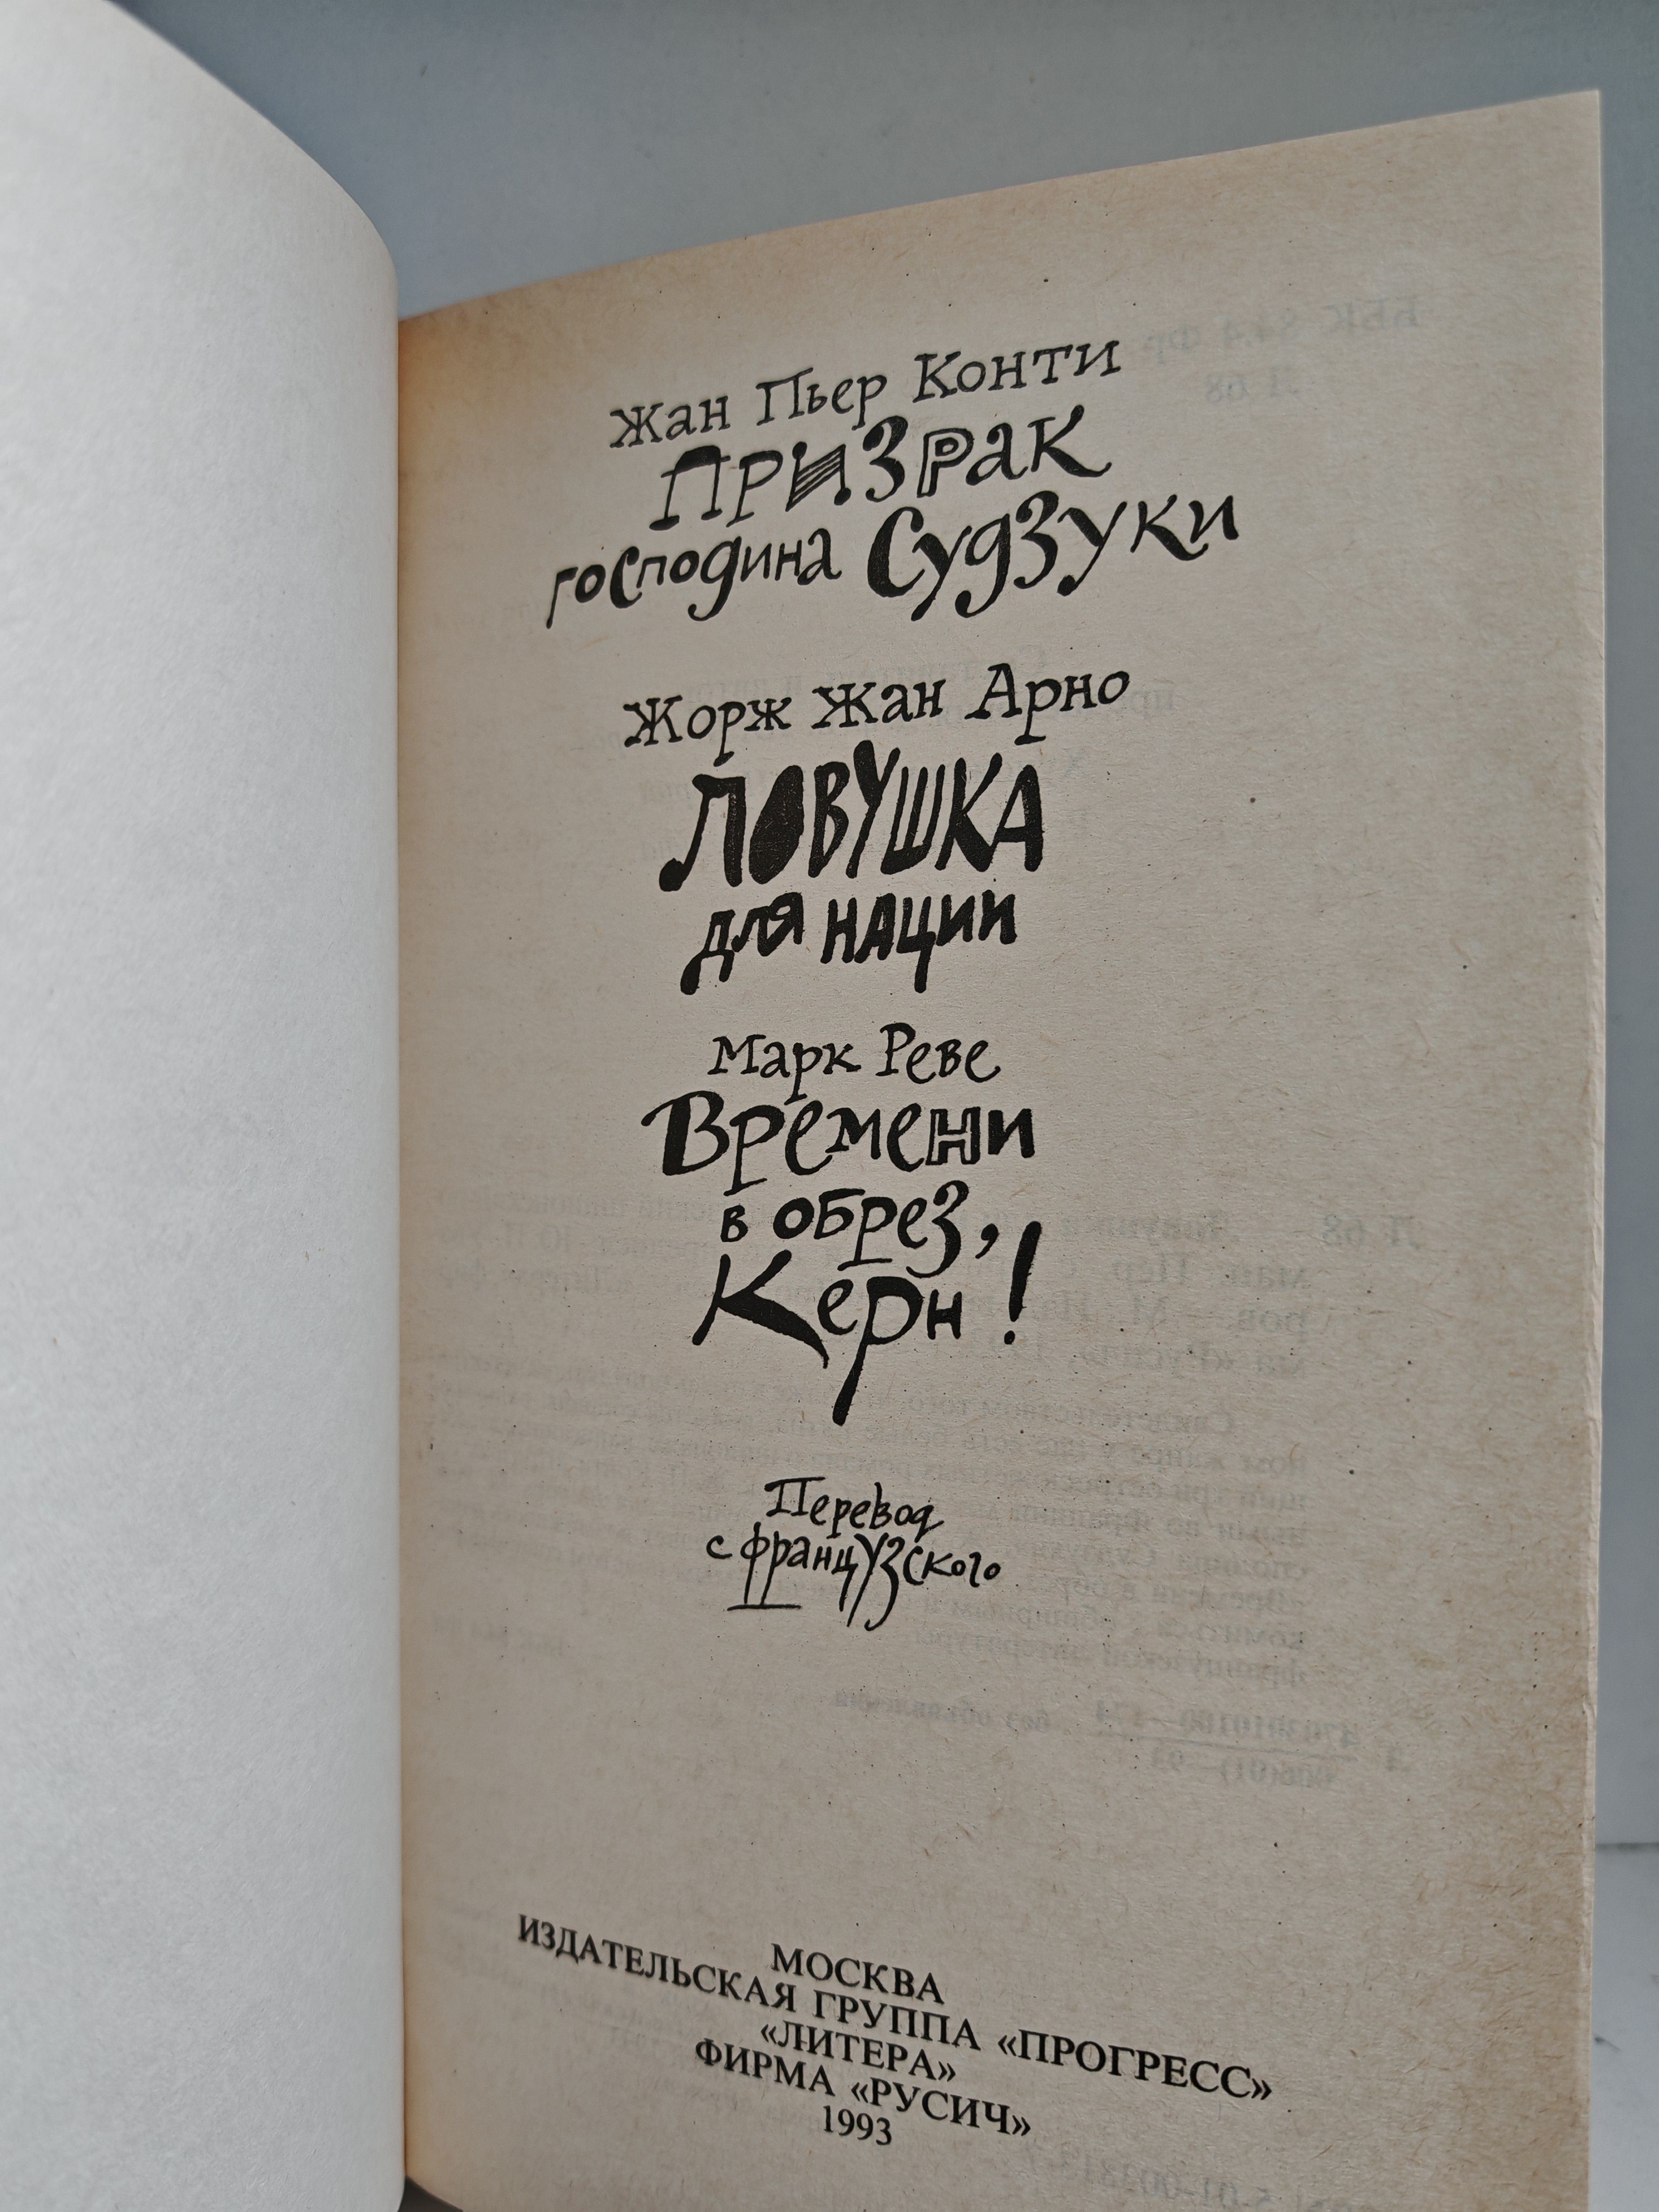 Жан Пьер Конти
Призрак
господина Судзуки
Жорж Жан Арно
Ловушка
для нации
Марк Реве
Времени
в обрез,
Керн!
Перевод
с французского
МОСКВА
ИЗДАТЕЛЬСКАЯ ГРУППА «ПРОГРЕСС»
«ЛИТЕРА»
ФИРМА «РУСИЧ»
1993